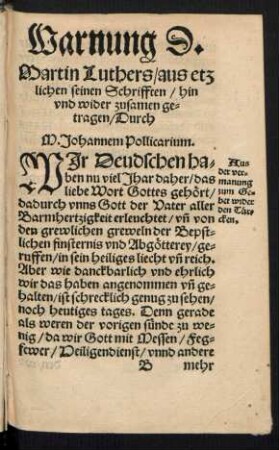 Warnung D.
Martin Luthers/aus etz
lichen seinen Schrifften / hin
vnd wider zusamen ge-
tragen/Durch
M. Johannem Pollicarium.
WIr Deudschen ha-
ben nu viel Jhar daher/das
liebe Wort Gottes gehört/
dadurch vnns Gott der Vater aller
Barmhertzigkeit erleuchtet / vn̄ von
den grewlichen greweln der Bepst-
lichen finsternis vnd Abgötterey/ge-
ruffen/in sein heiliges liecht vn̄ reich.
Aber wie danckbarlich vnd ehrlich
wir das haben angenommen vn̄ ge-
halten/ist schrecklich genug zu sehen/
noch heutiges tages. Denn gerade
als weren der vorigen sünde zu we-
nig/da wir Gott mit Messen/Feg-
fewer/Heiligendienst/vnnd andere
B mehr
Aus
der ver-
manung
zum Ge-
bet wider
den Tür-
cken.